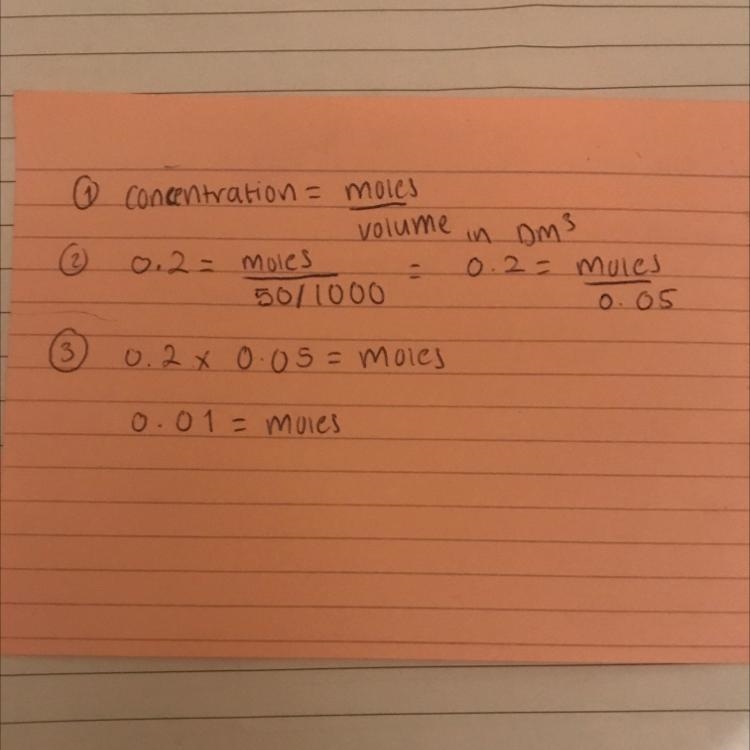 ① concentration = moles
volume in Dm³
② 0.2 = moles / 50/1000 = 0.2 = moles / 0.05
③ 0.2 x 0.05 = moles
0.01 = moles